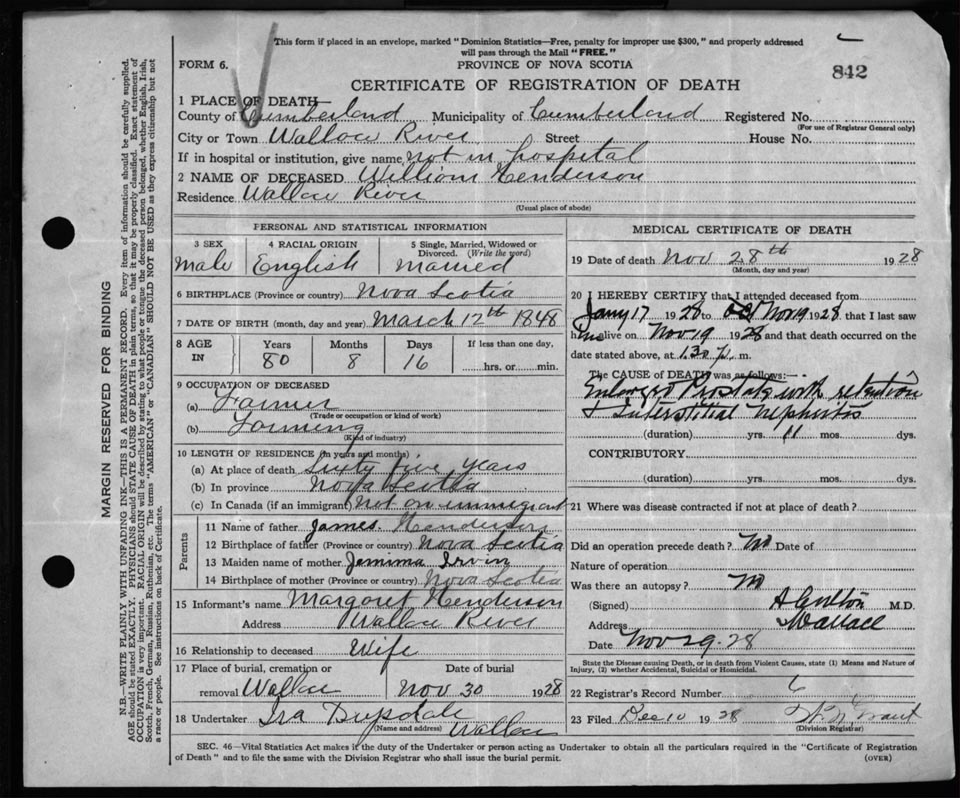 This form if placed in an envelope, marked "Dominion Statistics—Free, penalty for improper use $300," and properly addressed
will pass through the Mail "FREE."
FORM 6.
PROVINCE OF NOVA SCOTIA
842
CERTIFICATE OF REGISTRATION OF DEATH
1 PLACE OF DEATH
County of Cumberland Municipality of Cumberland Registered No.
(For use of Registrar General only)
City or Town Wallace River Street House No.
If in hospital or institution, give name, not in hospital
2 NAME OF DECEASED William Henderson
Residence Wallace River
(Usual place of abode)
PERSONAL AND STATISTICAL INFORMATION
3 SEX 4 RACIAL ORIGIN 5 Single, Married, Widowed or
Divorced. (Write the word)
male English Married
6 BIRTHPLACE (Province or country) Nova Scotia
7 DATE OF BIRTH (month, day and year) March 12th 1848
8 AGE Years Months Days If less than one day,
IN 80 8 16 hrs. or min.
9 OCCUPATION OF DECEASED
(a) Farmer
(Trade or occupation or kind of work)
(b) Farming
(Kind of industry)
10 LENGTH OF RESIDENCE (in years and months)
(a) At place of death Sixty five years
(b) In province Nova Scotia
(c) In Canada (if an immigrant) Not an immigrant
Parents
11 Name of father James Henderson
12 Birthplace of father (Province or country) Nova Scotia
13 Maiden name of mother Jemima Irvin
14 Birthplace of mother (Province or country) Nova Scotia
15 Informant's name Margaret Henderson
Address Wallace River
16 Relationship to deceased Wife
17 Place of burial, cremation or Date of burial
removal Wallace Nov 30 1928
18 Undertaker Ira Wallace
(Name and address)
MEDICAL CERTIFICATE OF DEATH
19 Date of death Nov 28th 1928
(Month, day and year)
20 I HEREBY CERTIFY that I attended deceased from
Jany 17 1928 to Nov 19 1928, that I last saw
him alive on Nov 19 1928 and that death occurred on the
date stated above, at 1.30 p. m.
The CAUSE of DEATH was as follows:—
Enlarged Prostate with retention
& Interstitial Nephritis
(duration) yrs. 11 mos. dys.
CONTRIBUTORY
(duration) yrs. mos. dys.
21 Where was disease contracted if not at place of death?
Did an operation precede death? No Date of
Nature of operation
Was there an autopsy? No
(Signed) M.D.
Address Wallace
Date Nov 29-28
State the Disease causing Death, or in death from Violent Causes, state (1) Means and Nature of
Injury, (2) whether Accidental, Suicidal or Homicidal.
22 Registrar's Record Number 6
23 Filed Dec 10 1928
(Division Registrar)
SEC. 46—Vital Statistics Act makes it the duty of the Undertaker or person acting as Undertaker to obtain all the particulars required in the "Certificate of Registration
of Death" and to file the same with the Division Registrar who shall issue the burial permit. (OVER)
MARGIN RESERVED FOR BINDING
N.B.—WRITE PLAINLY WITH UNFADING INK—THIS IS A PERMANENT RECORD. Every item of information should be carefully supplied.
AGE should be stated EXACTLY. PHYSICIANS should STATE CAUSE OF DEATH in plain terms, so that it may be properly classified. Exact statement of
OCCUPATION is very important. RACIAL ORIGIN will be described by stating to what people or tongue the deceased person belonged, whether English, Irish,
Scotch, French, German, Russian, Ruthenian, etc. The terms "AMERICAN" or "CANADIAN" SHOULD NOT BE USED as they express citizenship but not
a race or people. See instructions on back of Certificate.